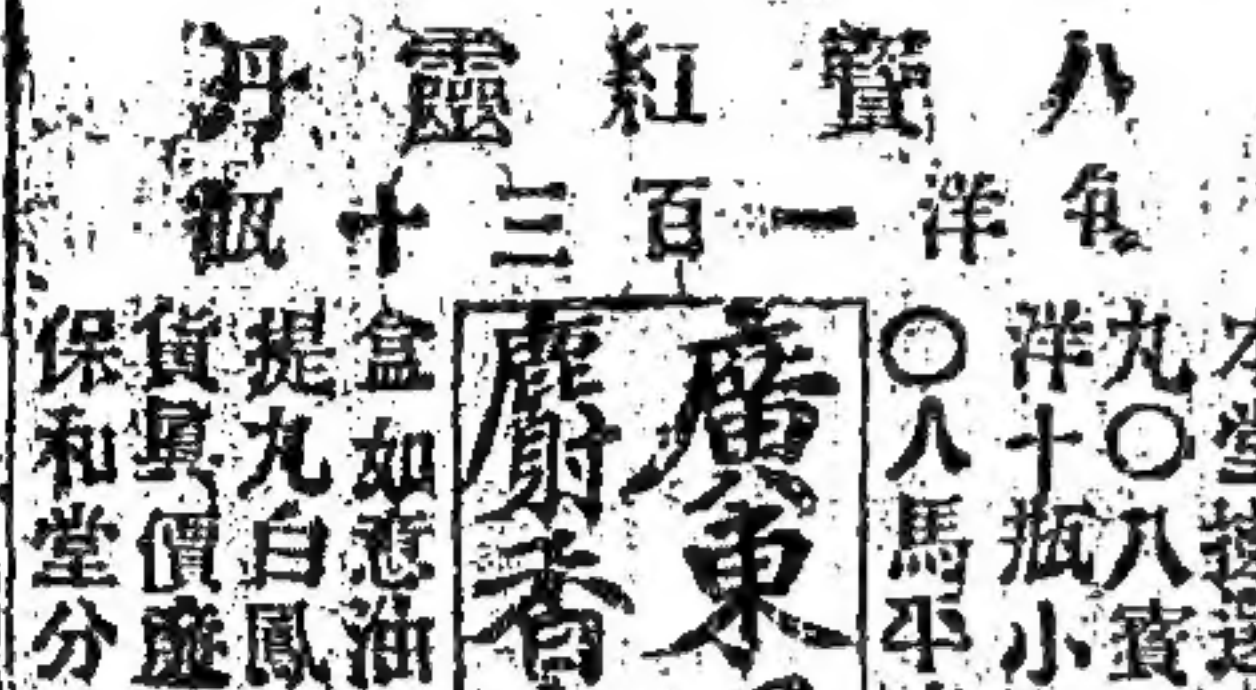 八寶紅靈丹
每洋一百三十瓶
九〇八寶
洋十瓶小
〇八馬牛
廣東
麝香
盒如意油
提丸白鳳
貨真價廉
保和堂分